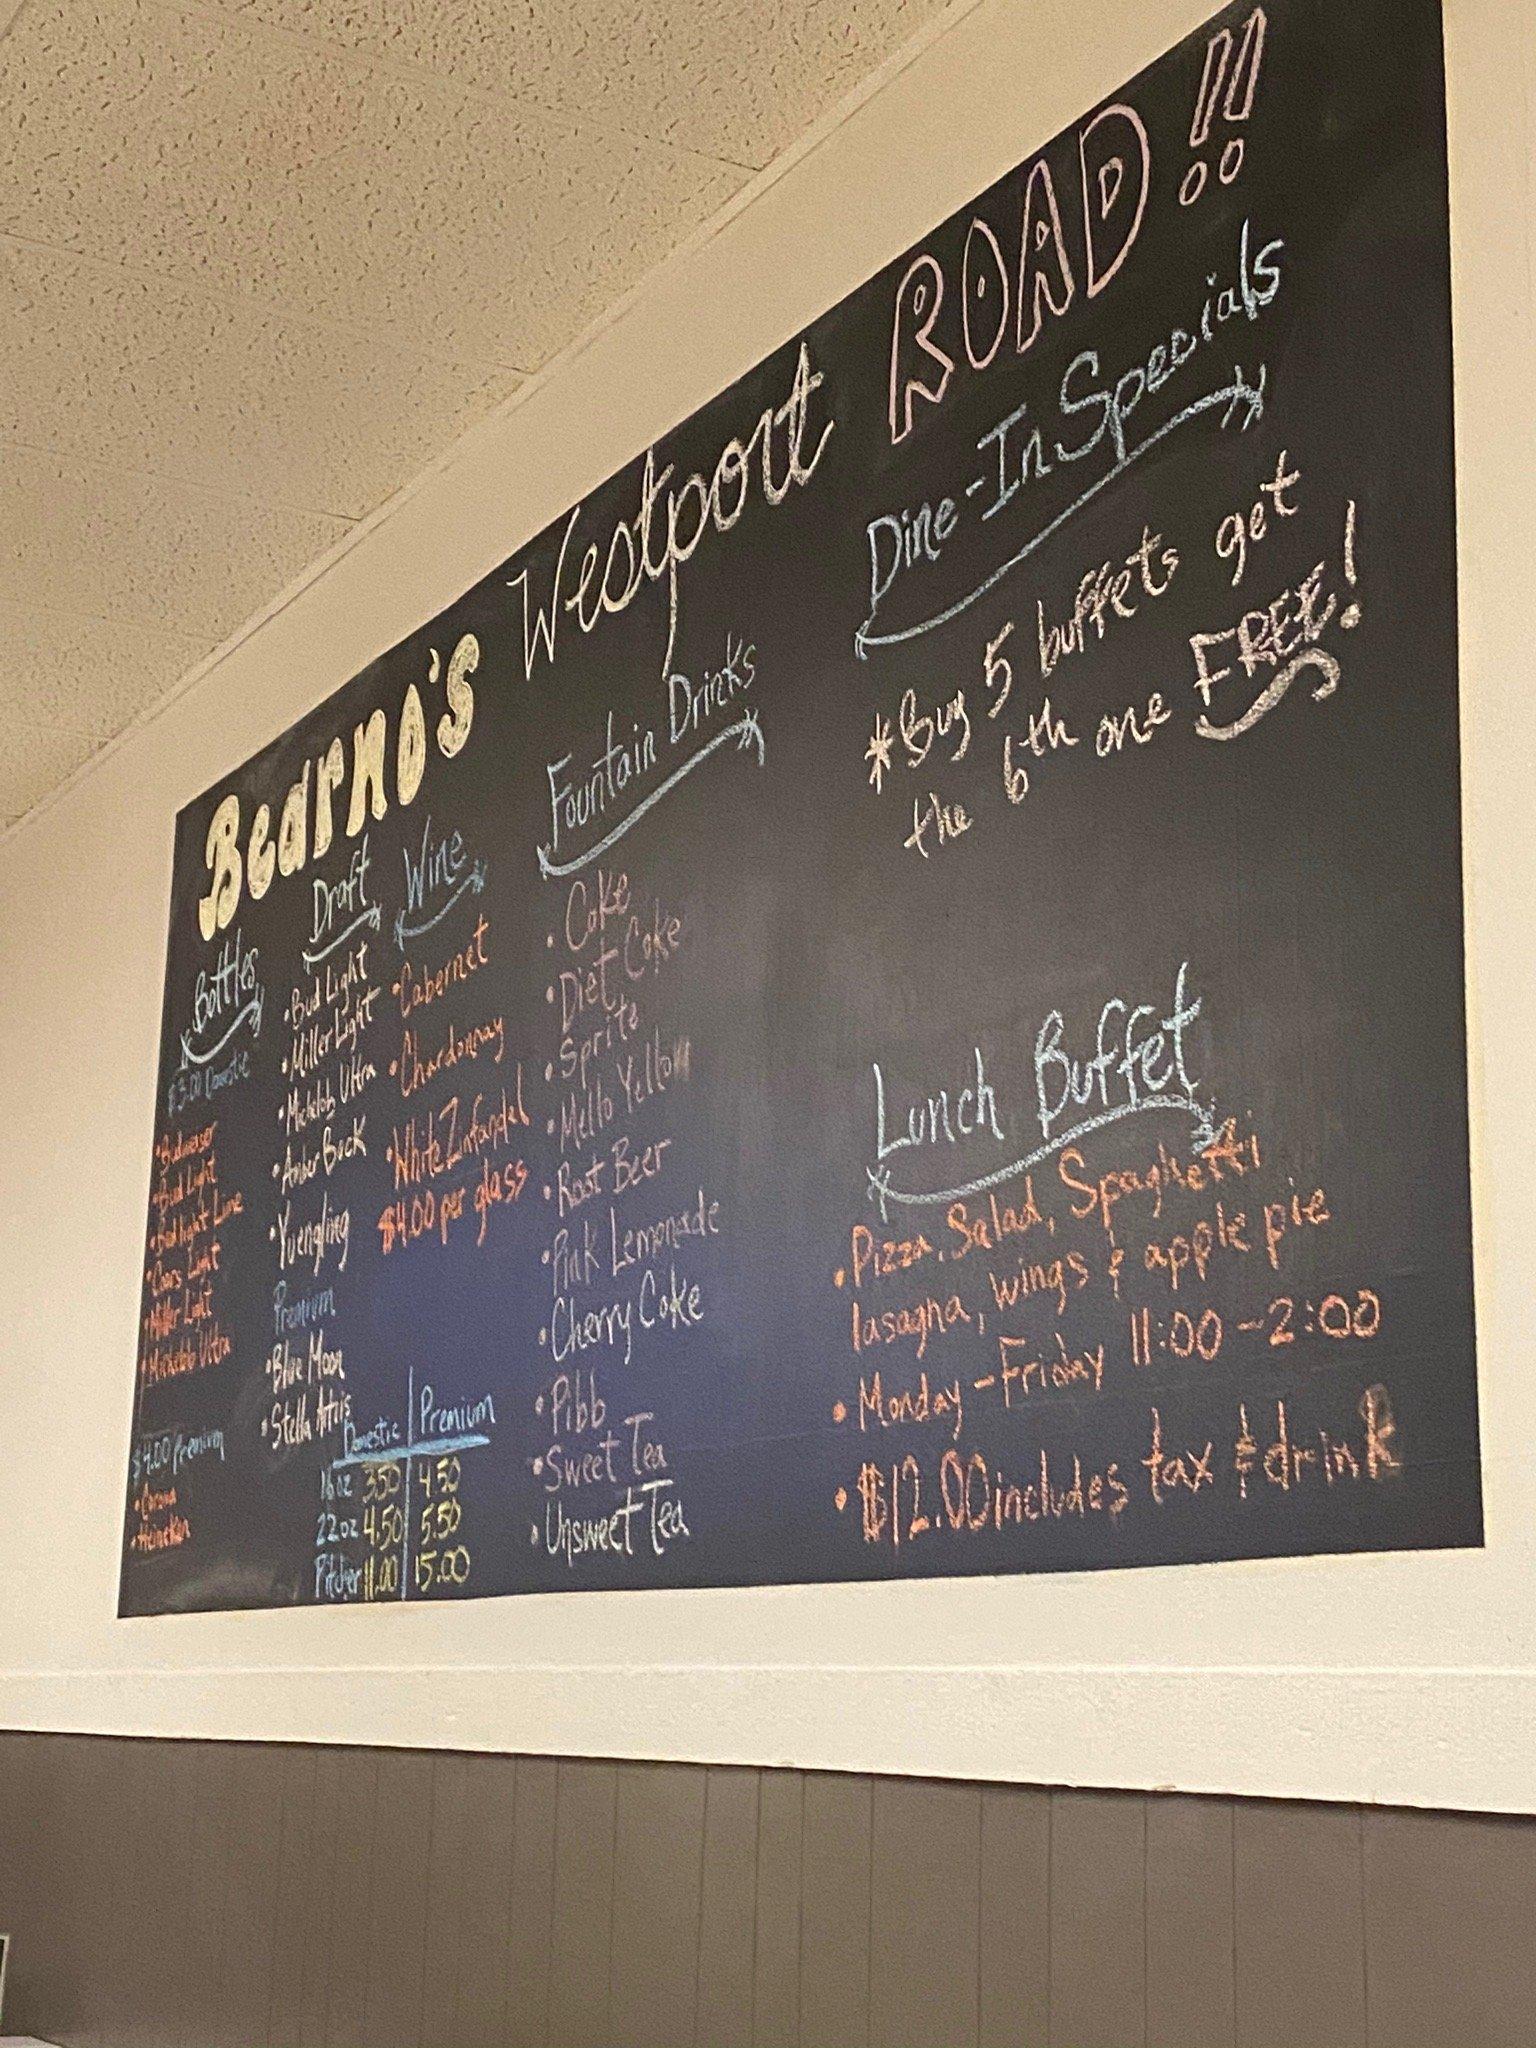 Bearno's Westport ROAD!!
Bottles
$3.00 Domestic
• Budweiser
• Bud Light
• Bud light Lime
• Coors Light
• Miller Light
• Michelob Ultra
$4.00 Premium
• Corona
• Heineken
Draft
• Bud Light
• Miller Light
• Michelob Ultra
• Amber Bock
• Yuengling
Premium
• Blue Moon
• Stella Artois
Domestic | Premium
16oz 3.50 | 4.50
22oz 4.50 | 5.50
Pitcher 11.00 | 15.00
Wine
• Cabernet
• Chardonnay
• White Zinfandel
$4.00 per glass
Fountain Drinks
• Coke
• Diet Coke
• Sprite
• Mello Yellow
• Root Beer
• Pink Lemonade
• Cherry Coke
• Pibb
• Sweet Tea
• Unsweet Tea
Dine-In Specials
*Buy 5 buffets get
the 6th one FREE!
Lunch Buffet
• Pizza, Salad, Spaghetti
lasagna, wings & apple pie
• Monday - Friday 11:00 - 2:00
• $12.00 includes tax & drink